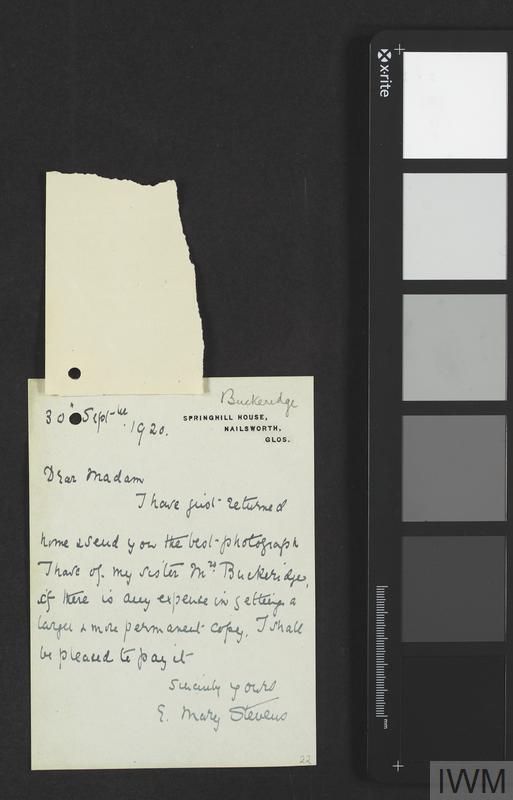 Buckeridge
30 Sept-
1920.
SPRINGHILL HOUSE,
NAILSWORTH,
GLOS.
Dear Madam
I have just returned
home & send you the best photograph
I have of my sister Mrs Buckeridge,
if there is any expense in getting a
larger & more permanent copy, I shall
be pleased to pay it
Sincerely yours
E. Mary Stevens
22
x·rite
mm
IWM